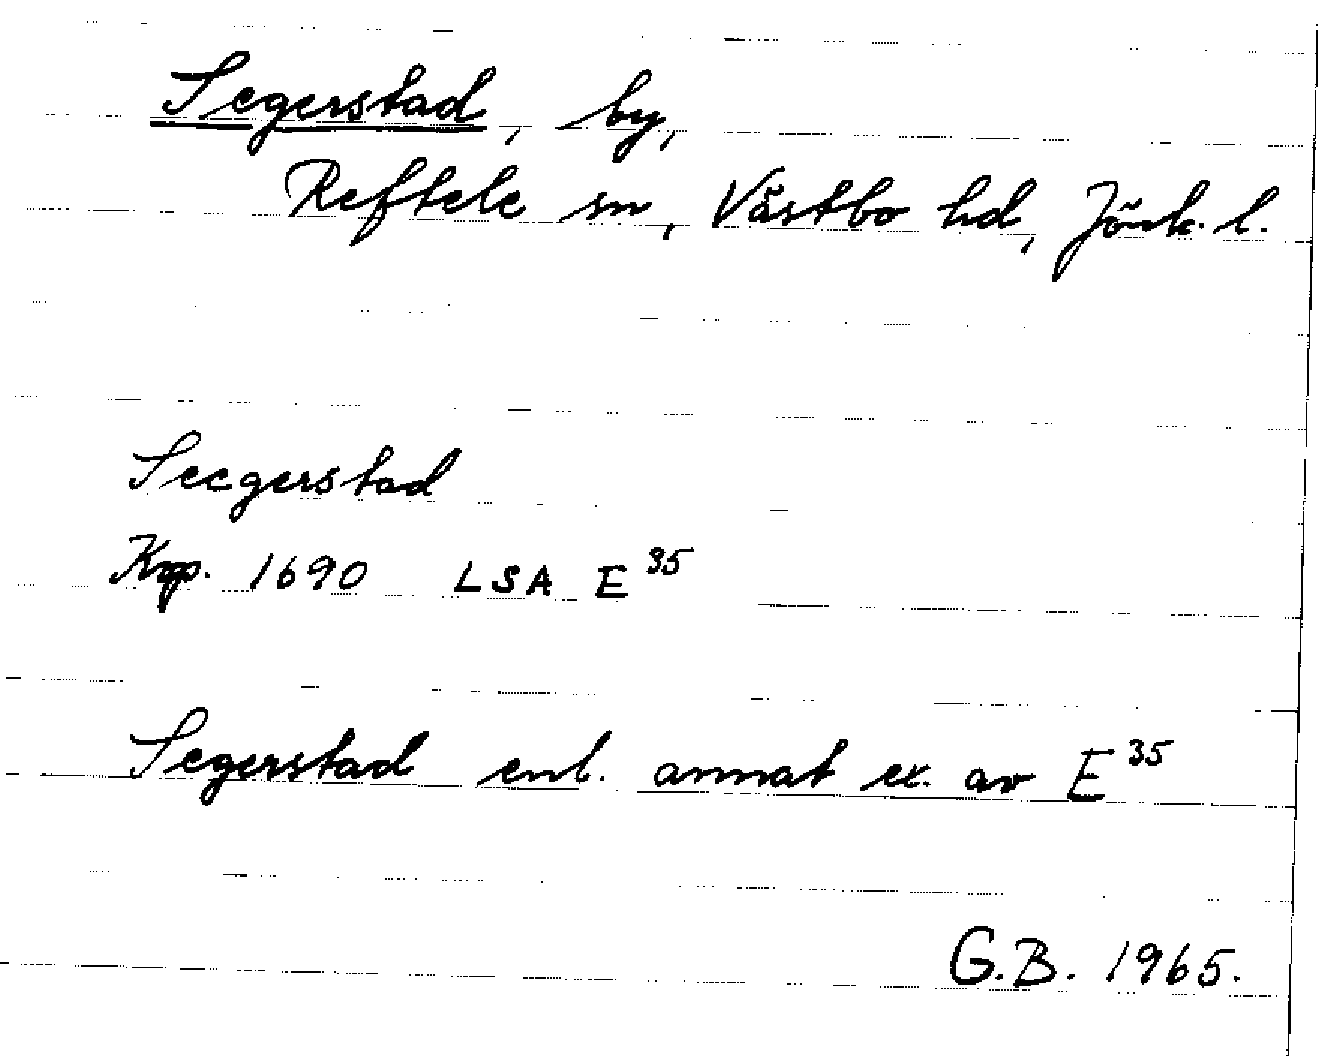 Segerstad, by,
Reftele sn, Västbo hd, Jönk. l.
Seegerstad
Krp. 1690 LSA E 35
Segerstad enl. annat ex. av E 35
G.B. 1965.